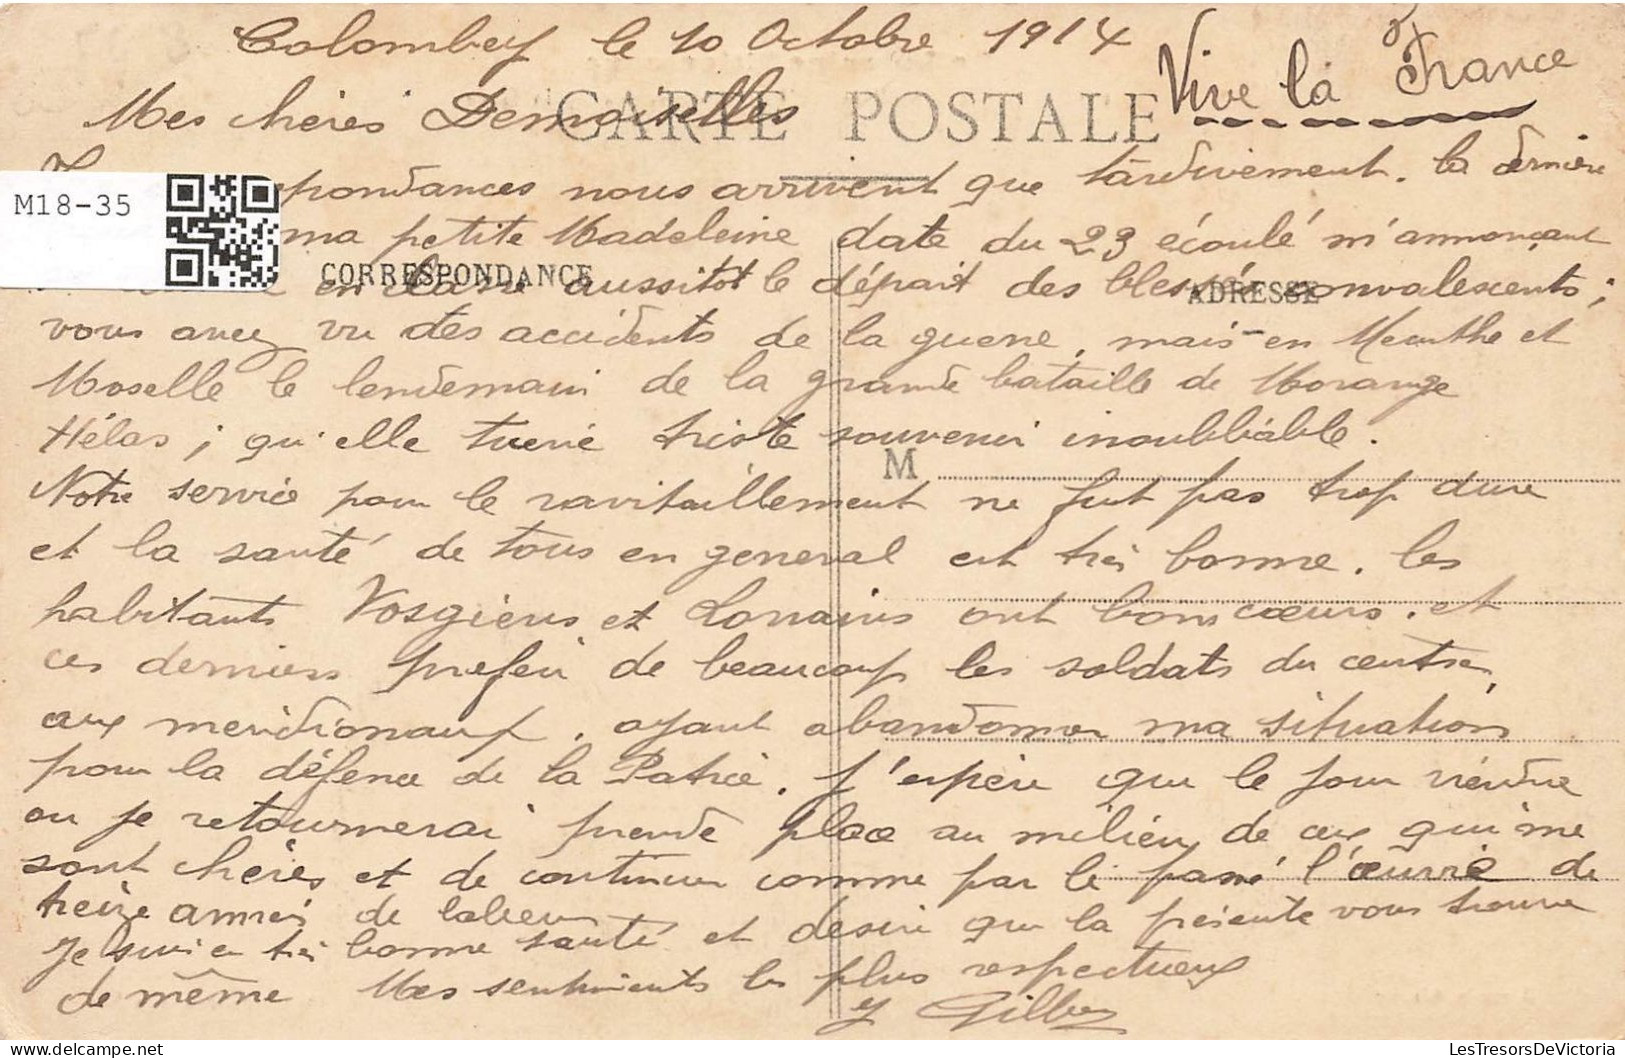 Colombey le 10 Octobre 1914
Vive la France
CARTE POSTALE
Mes chères Demoiselles
pondances nous arrivent que tardivement. la dernière
M18-35
ma petite Madeleine date du 23 écoulé m'annonçant
CORRESPONDANCE
ADRESSE
en classe aussitot le dépait des blessés convalescents ;
vous avez vu des accidents de la guerre, mais en Meurthe et
Moselle le lendemain de la grande bataille de Morange
Hélas ; qu'elle tuerie triste souvenir inoubliable.
M
Notre service pour le ravitaillement ne fut pas trop dure
et la santé de tous en general est très bonne. les
habitants Vosgiens et Lorrains ont bons cœurs. et
ces derniers prefèri de beaucoup les soldats du centre,
aux meridionaux. ayant abandonner ma situation
pour la défence de la Patrie. j'espère que le jour viendra
ou je retournerai prende place au milieu de ceux qui me
sont chères et de continuer comme par le passé l'œuvre de
treize années de labeur
Je suis en très bonne santé et desire que la présente vous trouve
de même Mes sentiments les plus respectueux
J Gilber
LesTresorsDeVictoria
https://www.delcampe.net